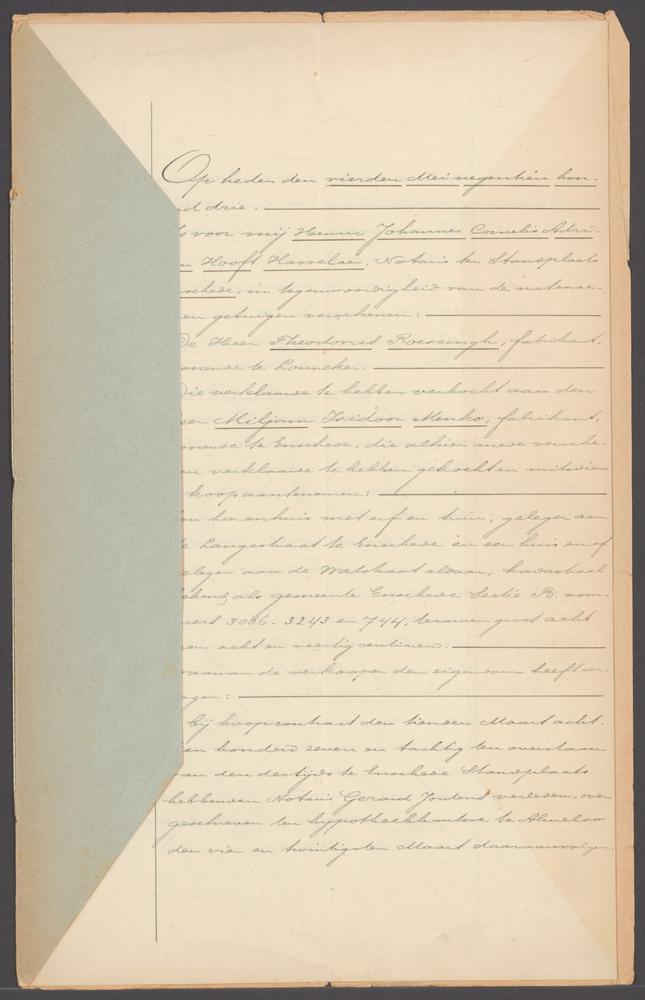 Op heden den vierden Mei negentien hon-
d drie.
voor mij Henric Johannes Cornelis Adri-
n Hooft Hasselaar, Notaris ter Standplaats
schede, in tegenwoordigheid van de natenoe-
en getuigen verschenen:
De Heer Theodorus Roessingh, fabrikant,
onende te Lonneker.
Die verklaarde te hebben verkocht aan den
eer Miljam Isidoor Menko, fabrikant,
onende te Enschede, die alhier mede versche-
en verklaarde te hebben gekocht en mitsdien
koop aantenemen:
en heerenhuis met erf en tuin, gelegen aan
e Langestraat te Enschede en een huis en erf
elegen aan de Walstraat aldaar, kadastraal
ekend als gemeente Enschede Sectie A. num-
mers 3086 - 3243 en 744, tesamen groot acht
ren acht en veertig centiaren:
waarvan de verkooper den eigendom heeft
gen:
bij koopcontract den tienden Maart acht-
en honderd zeven en tachtig ten overstaan
van den destijds te Enschede Standplaats
hebbenden Notaris Gerard Jordens verleden, over
geschreven ten hypotheekkantore te Almeloo
den vier en twintigsten Maart daaraanvolgen